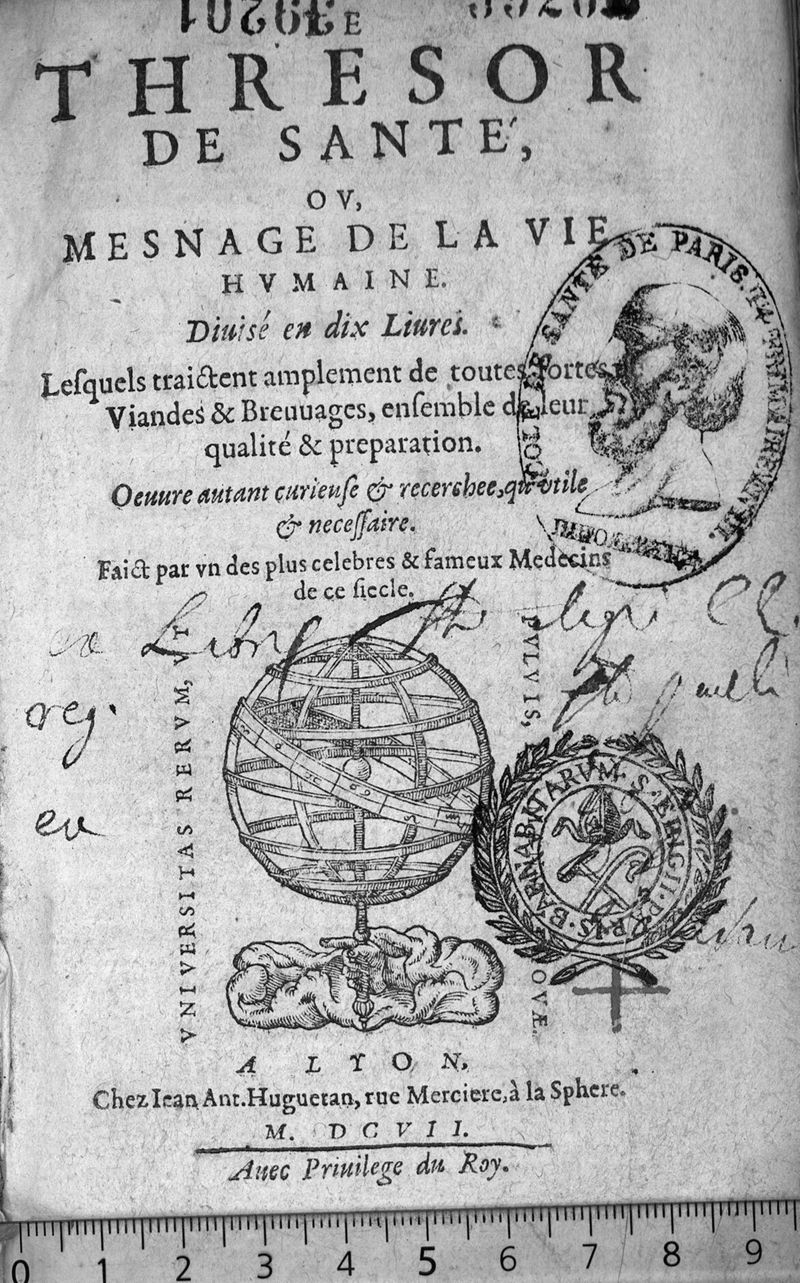 THRESOR
DE SANTE',
OV,
MESNAGE DE LA VIE
HVMAINE.
Diuisé en dix Liures.
Lesquels traictent amplement de toutes sortes
Viandes & Breuuages, ensemble de leur
qualité & preparation.
Oeuure autant curieuse & recerchee, qu'vtile
& necessaire.
Faict par vn des plus celebres & fameux Medecins
de ce siecle.
SANTE DE PARIS.
ex Libris
reg.
VNIVERSITAS RERVM, VT
PVLVIS,
IOVÆ.
BARNABITARVM S. ELIGII PARIS
A LYON,
Chez Iean Ant. Huguetan, rue Merciere, à la Sphere.
M. DCVII.
Auec Priuilege du Roy.
0 1 2 3 4 5 6 7 8 9